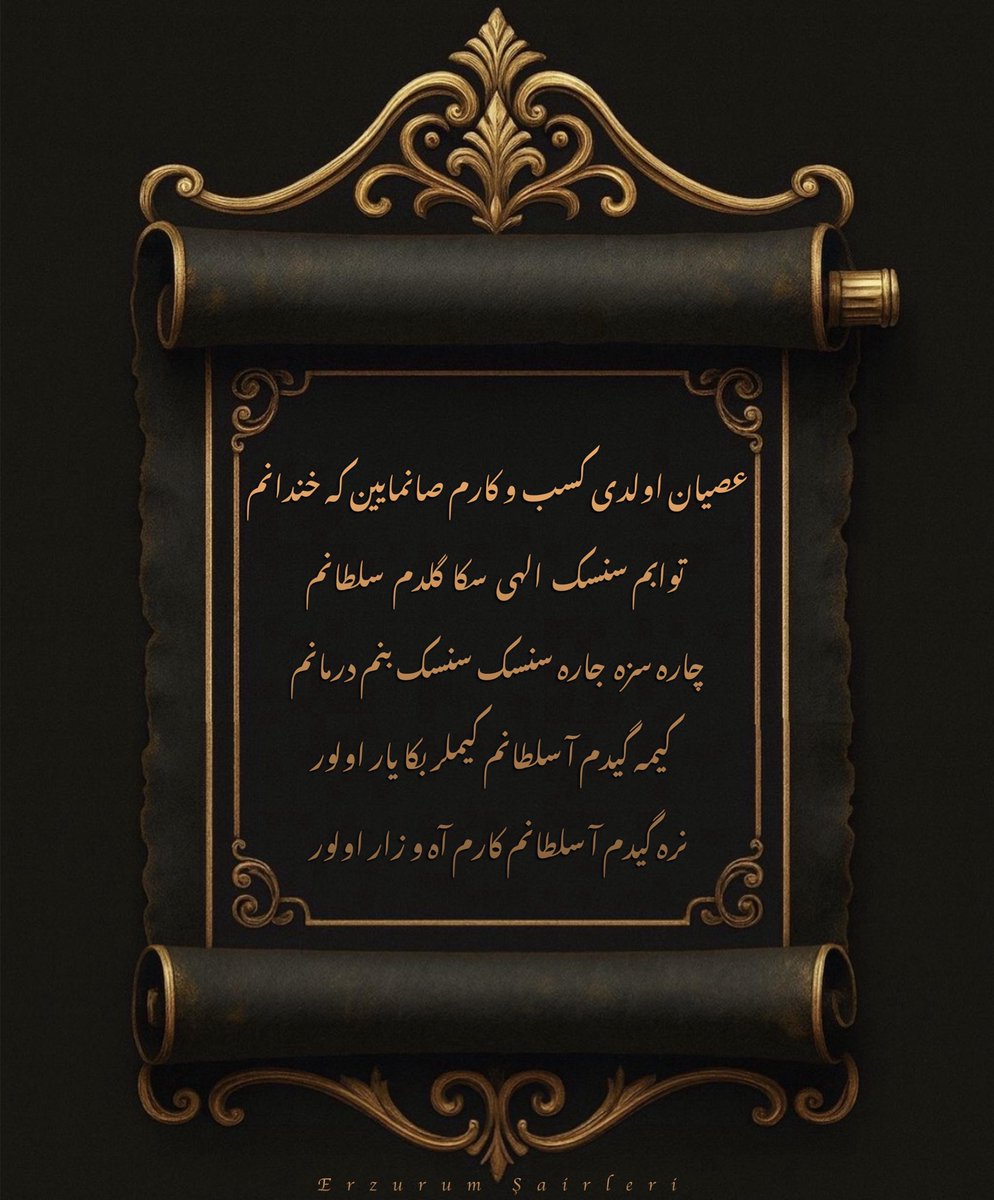 عصیان اولدی كسب و كارم صانمایین كه خندانم
توابم سنسك الهی سكا گلدم سلطانم
چاره سزه جاره سنسك سنسك بنم درمانم
كیمه گیدم آ سلطانم كیملر بكا یار اولور
نره گیدم آ سلطانم كارم آه و زار اولور
Erzurum Şairleri